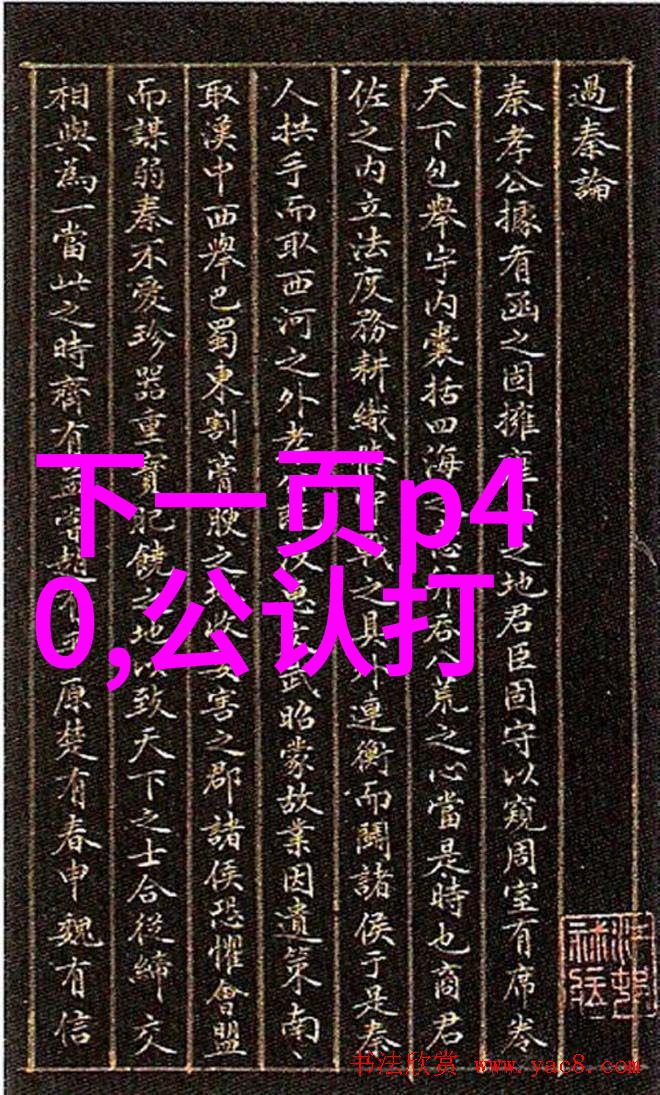 過秦論
秦孝公據肴函之固擁雍州之地君臣固守以窺周室有席卷
天下包舉宇内囊括四海之意并吞八荒之心當是時也商君
佐之内立法度務耕織脩守戰之具外連衡而鬭諸侯于是秦
人拱手而取西河之外孝公既没惠文武昭蒙故業因遺策南
取漢中西舉巴蜀東割膏腴之地收要害之郡諸侯恐懼會盟
而謀弱秦不愛珍器重寶肥饒之地以致天下之士合從締交
相與為一當此之時齊有孟嘗趙有平原楚有春申魏有信
下一页p4
0,公认打
书法欣赏 www.yac8.com